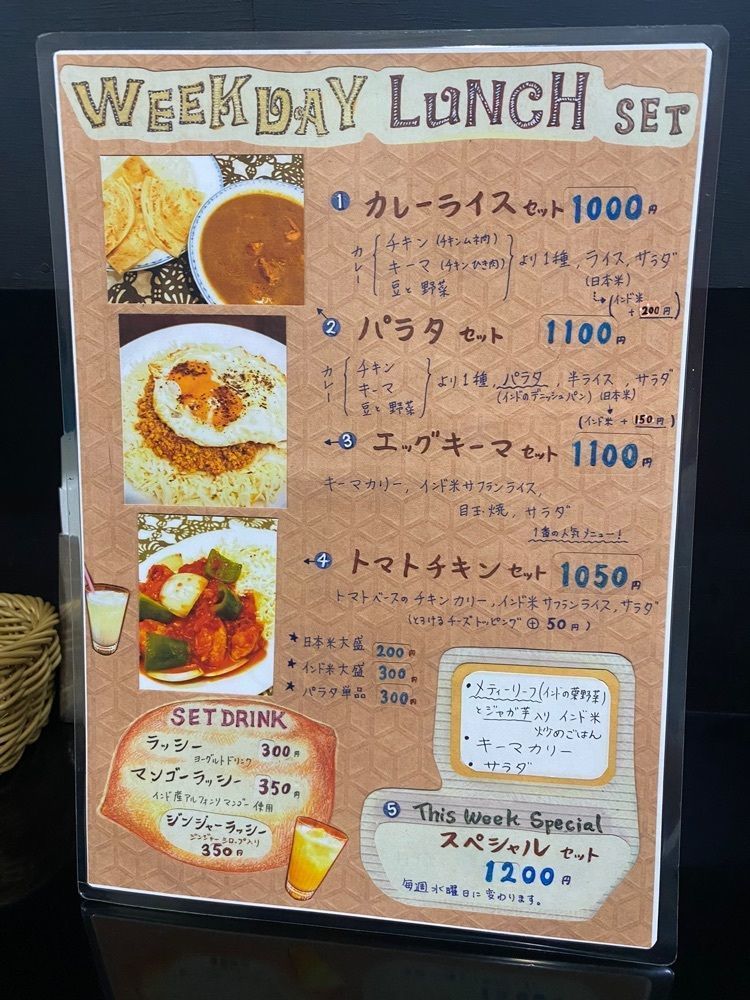 WEEKDAY LUNCH SET
1 カレーライス セット 1000円
カレー
チキン (チキンムネ肉)
キーマ (チキンひき肉)
豆と野菜
より1種, ライス, サラダ
(日本米)
(インド米
+ 200円)
2 パラタ セット 1100円
カレー
チキン
キーマ
豆と野菜
より1種, パラタ, 半ライス, サラダ
(インドのデニッシュパン) (日本米)
(インド米 + 150円)
3 エッグキーマ セット 1100円
キーマカリー, インド米サフランライス,
目玉焼, サラダ
1番の人気メニュー!
4 トマトチキン セット 1050円
トマトベースのチキンカリー, インド米サフランライス, サラダ
(とろけるチーズトッピング ⊕ 50円)
★ 日本米大盛 200円
★ インド米大盛 300円
★ パラタ単品 300円
SET DRINK
ラッシー 300円
ヨーグルトドリンク
マンゴーラッシー 350円
インド産アルフォンソマンゴー使用
ジンジャーラッシー
ジンジャーシロップ入り
350円
・メティーリーフ(インドの葉野菜)
とジャガ芋入り インド米
炒めごはん
・キーマカリー
・サラダ
5 This Week Special
スペシャル セット
1200円
毎週水曜日に変わります。